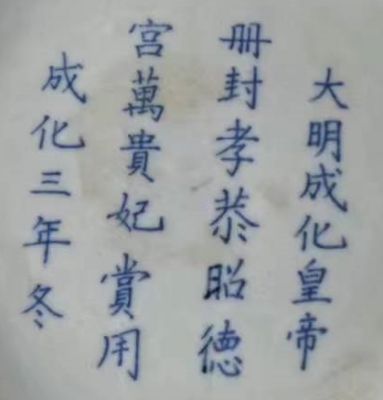 大明成化皇帝
册封孝恭昭德
宫萬貴妃賞用
成化三年冬